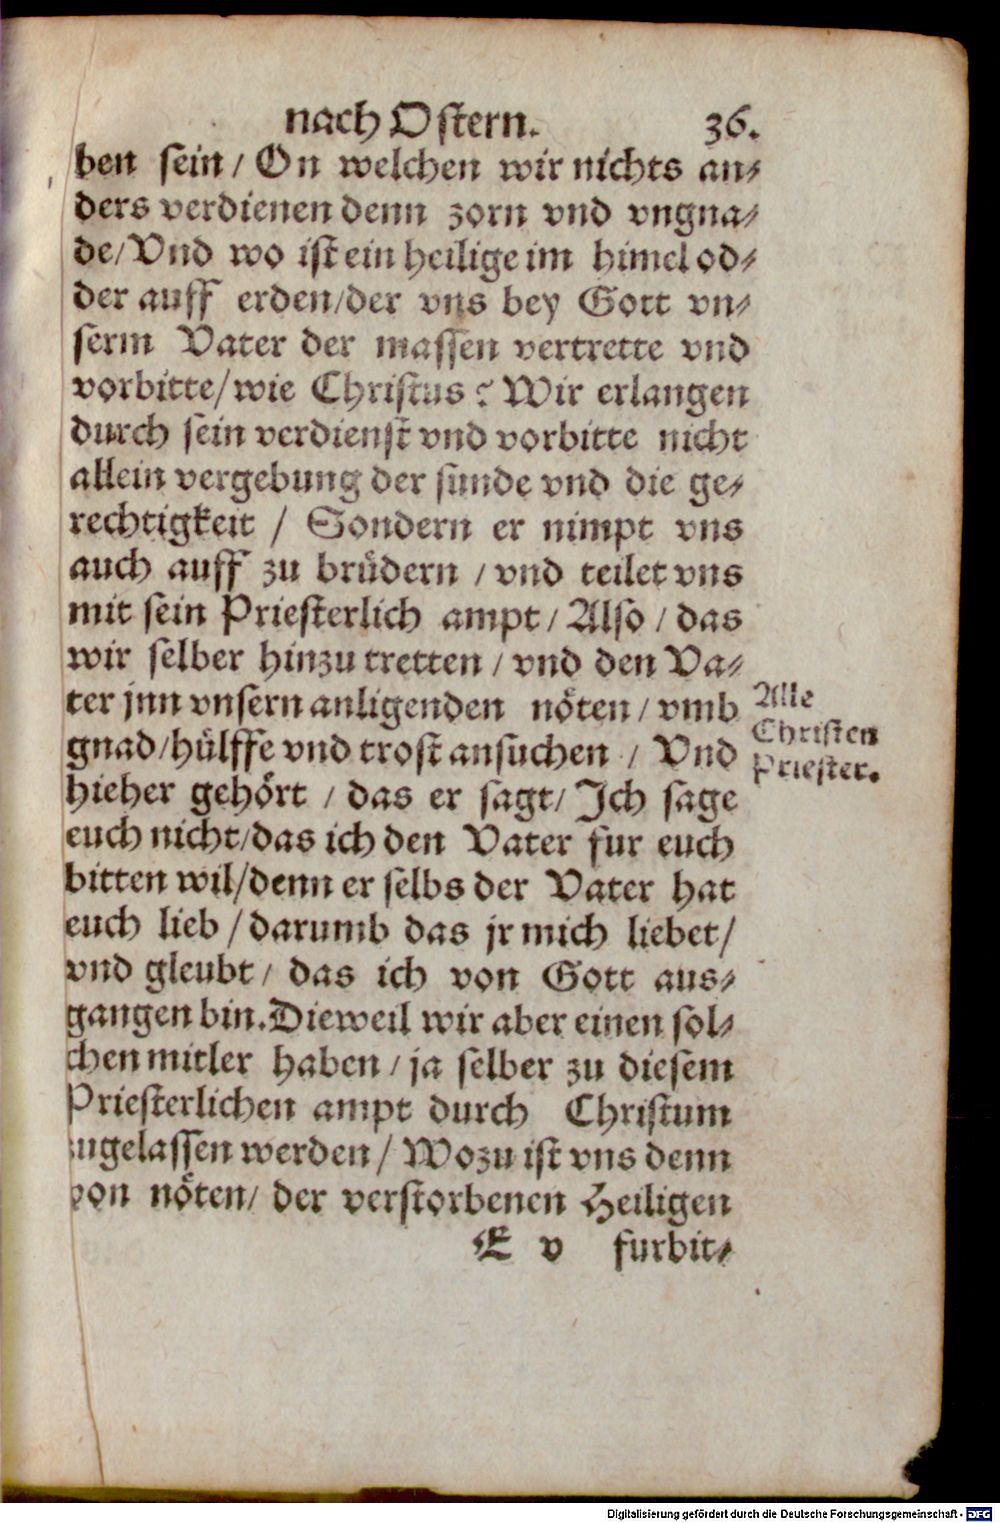 nach Ostern. 36.
ben sein / On welchen wir nichts an⸗
ders verdienen denn zorn vnd vngna⸗
de / Vnd wo ist ein heilige im himel od⸗
der auff erden / der vns bey Gott vn⸗
serm Vater der massen vertrette vnd
vorbitte / wie Christus? Wir erlangen
durch sein verdienst vnd vorbitte nicht
allein vergebung der sunde vnd die ge⸗
rechtigkeit / Sondern er nimpt vns
auch auff zu brüdern / vnd teilet vns
mit sein Priesterlich ampt / Also / das
wir selber hinzu tretten / vnd den Va⸗
ter jnn vnsern anligenden nöten / vmb
gnad / hülffe vnd trost ansuchen / Vnd
hieher gehört / das er sagt / Ich sage
euch nicht / das ich den Vater fur euch
bitten wil / denn er selbs der Vater hat
euch lieb / darumb das jr mich liebet /
vnd gleubt / das ich von Gott aus⸗
gangen bin. Dieweil wir aber einen sol⸗
chen mitler haben / ja selber zu diesem
Priesterlichen ampt durch Christum
zugelassen werden / Wozu ist vns denn
von nöten / der verstorbenen Heiligen
E v furbit⸗
Alle
Christen
Priester.
Digitalisierung gefördert durch die Deutsche Forschungsgemeinschaft - DFG